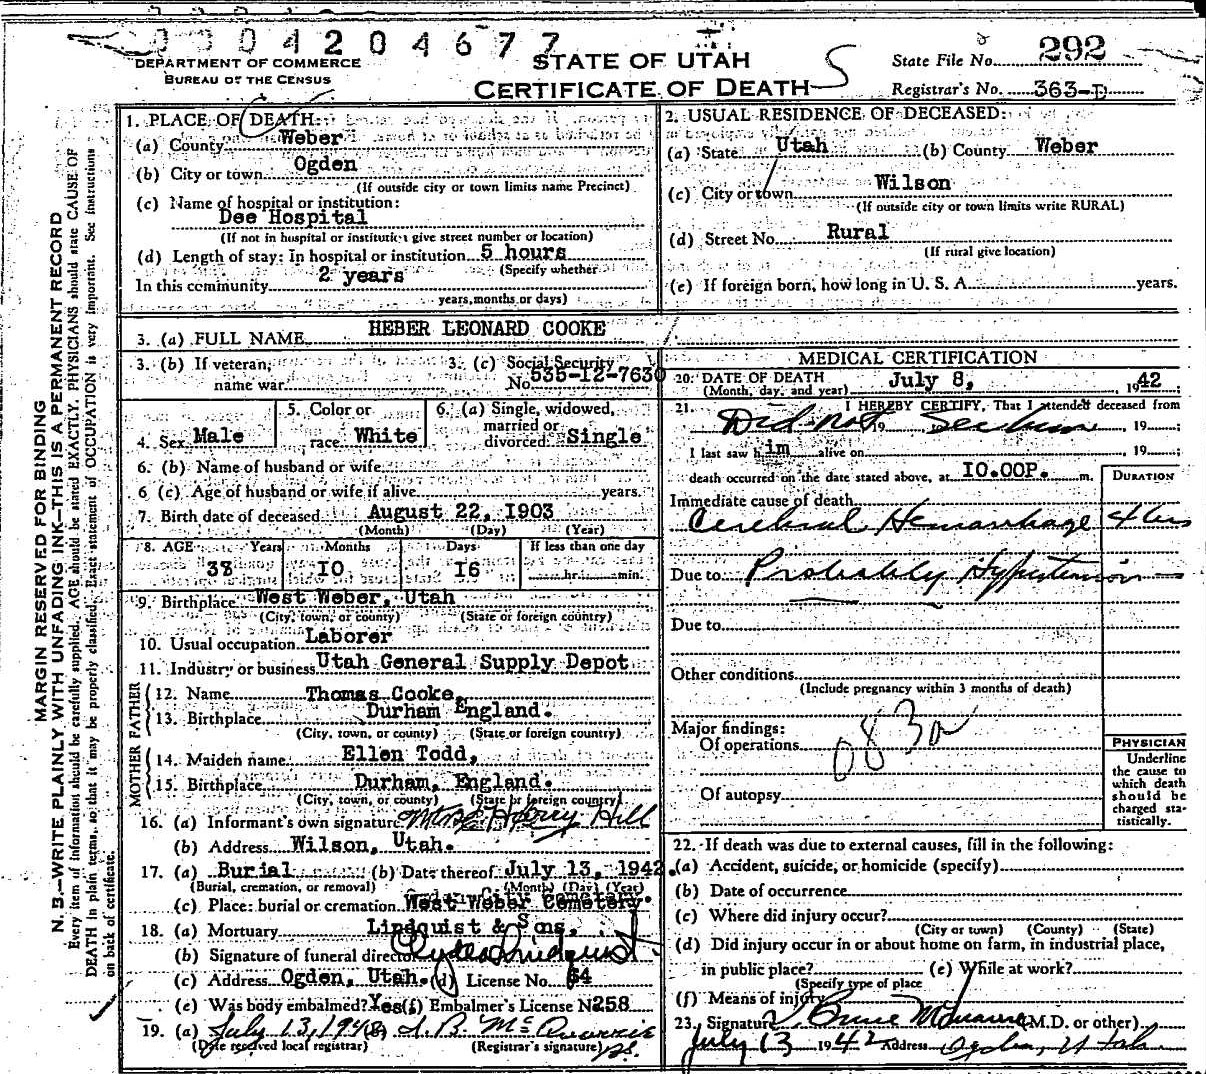 0304204677
DEPARTMENT OF COMMERCE
BUREAU OF THE CENSUS
STATE OF UTAH
CERTIFICATE OF DEATH
State File No. 292
Registrar's No. 363-D
MARGIN RESERVED FOR BINDING
N. B.—WRITE PLAINLY WITH UNFADING INK—THIS IS A PERMANENT RECORD
Every item of information should be carefully supplied. AGE should be stated EXACTLY. PHYSICIANS should state CAUSE OF
DEATH in plain terms, so that it may be properly classified. Exact statement of OCCUPATION is very important. See instructions
on back of certificate.
1. PLACE OF DEATH:
(a) County Weber
(b) City or town Ogden
(If outside city or town limits name Precinct)
(c) Name of hospital or institution:
Dee Hospital
(If not in hospital or institution give street number or location)
(d) Length of stay: In hospital or institution 5 hours
(Specify whether
In this community 2 years
years, months or days)
2. USUAL RESIDENCE OF DECEASED:
(a) State Utah (b) County Weber
(c) City or town Wilson
(If outside city or town limits write RURAL)
(d) Street No. Rural
(If rural give location)
(e) If foreign born, how long in U. S. A. years.
3. (a) FULL NAME HEBER LEONARD COOKE
3. (b) If veteran, name war
3. (c) Social Security No. 535-12-7630
4. Sex Male
5. Color or race White
6. (a) Single, widowed, married or divorced Single
6. (b) Name of husband or wife
6 (c) Age of husband or wife if alive years.
7. Birth date of deceased August 22, 1903
(Month) (Day) (Year)
8. AGE Years Months Days If less than one day
38 10 16 hr. min.
9. Birthplace West Weber, Utah
(City, town, or county) (State or foreign country)
10. Usual occupation Laborer
11. Industry or business Utah General Supply Depot
FATHER
12. Name Thomas Cooke,
13. Birthplace Durham England.
(City, town, or county) (State or foreign country)
MOTHER
14. Maiden name Ellen Todd,
15. Birthplace Durham, England.
(City, town, or county) (State or foreign country)
16. (a) Informant's own signature Mrs Harry Hill
(b) Address Wilson, Utah.
17. (a) Burial (b) Date thereof July 13, 1942.
(Burial, cremation, or removal) (Month) (Day) (Year)
(c) Place: burial or cremation West Weber Cemetery.
18. (a) Mortuary Lindquist & Sons,
(b) Signature of funeral director Clyde Lindquist
(c) Address Ogden, Utah. (d) License No. 64
(e) Was body embalmed? Yes (f) Embalmer's License No. 258
19. (a) July 13, 1942 (b)
(Date received local registrar) (Registrar's signature)
MEDICAL CERTIFICATION
20. DATE OF DEATH July 8, 1942;
(Month, day, and year)
21. I HEREBY CERTIFY, That I attended deceased from
Did not see him 19 ;
I last saw him alive on , 19 ;
death occurred on the date stated above, at 10.00P. m.
DURATION
Immediate cause of death
Cerebral Hemorrhage 4 hrs
Due to Probably Hypertension
Due to
Other conditions
(Include pregnancy within 3 months of death)
Major findings:
Of operations 083a
Of autopsy
PHYSICIAN
Underline
the cause to
which death
should be
charged sta-
tistically.
22. If death was due to external causes, fill in the following:
(a) Accident, suicide, or homicide (specify)
(b) Date of occurrence
(c) Where did injury occur?
(City or town) (County) (State)
(d) Did injury occur in or about home on farm, in industrial place,
in public place? (e) While at work?
(Specify type of place
(f) Means of injury
23. Signature (M.D. or other)
July 13 1942 Address Ogden, Utah